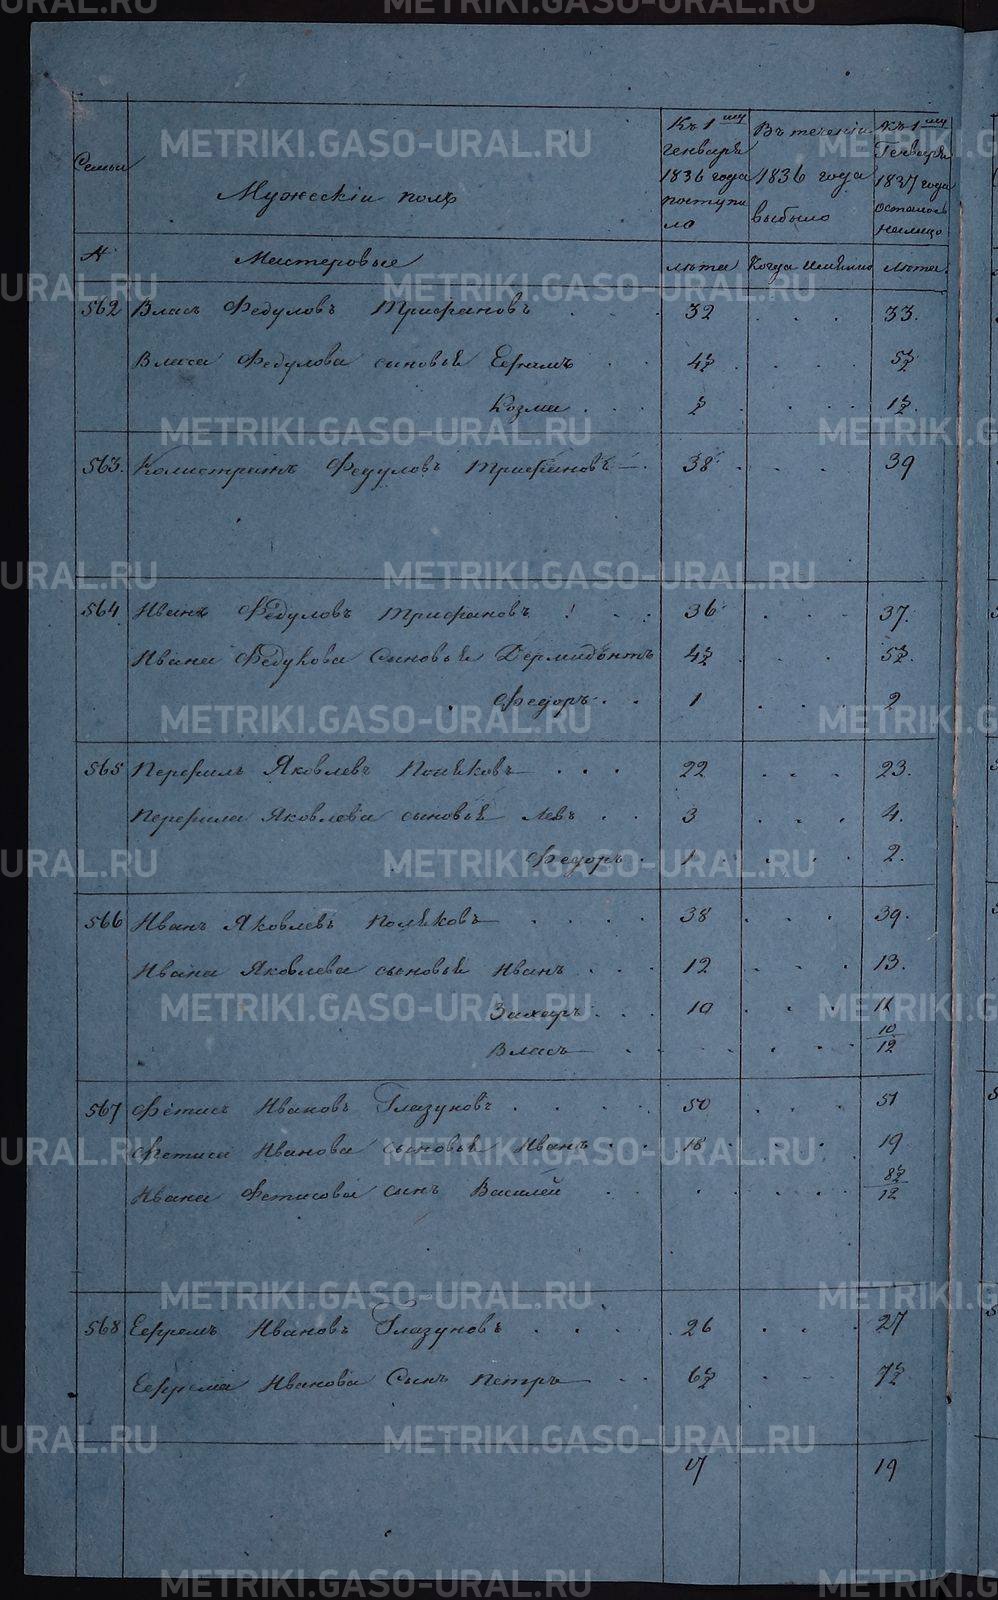 Семьи
Мужескій полъ
Къ 1му генваря 1836 года поступило
Въ теченіи 1836 года выбыло
Къ 1му Генваря 1837 года осталось налицо
№
Мастеровые
лѣта
Когда именно
лѣта
562 Власъ Федуловъ Трифановъ 32 33
Власа Федулова сыновья Ефимъ 4½ 5½
Козма ½ 1½
563. Калистратъ Федуловъ Трифановъ 38 39
564 Иванъ Федуловъ Трифановъ 36 37
Ивана Федулова Сыновья Дермидонтъ 4½ 5½
Федоръ 1 2
565 Перфилъ Яковлевъ Поляковъ 22 23
Перфила Яковлева сыновья Левъ 3 4
Федоръ 1 2
566 Иванъ Яковлевъ Поляковъ 38 39
Ивана Яковлева сыновья Иванъ 12 13
Захаръ 10 11
Власъ 10/12
567 Фетисъ Ивановъ Глазуновъ 50 51
Фетиса Иванова сыновья Иванъ 18 19
Ивана Фетисова сынъ Василей 8½/12
568 Ефремъ Ивановъ Глазуновъ 26 27
Ефрема Иванова Сынъ Петръ 6½ 7½
17 19
METRIKI.GASO-URAL.RU